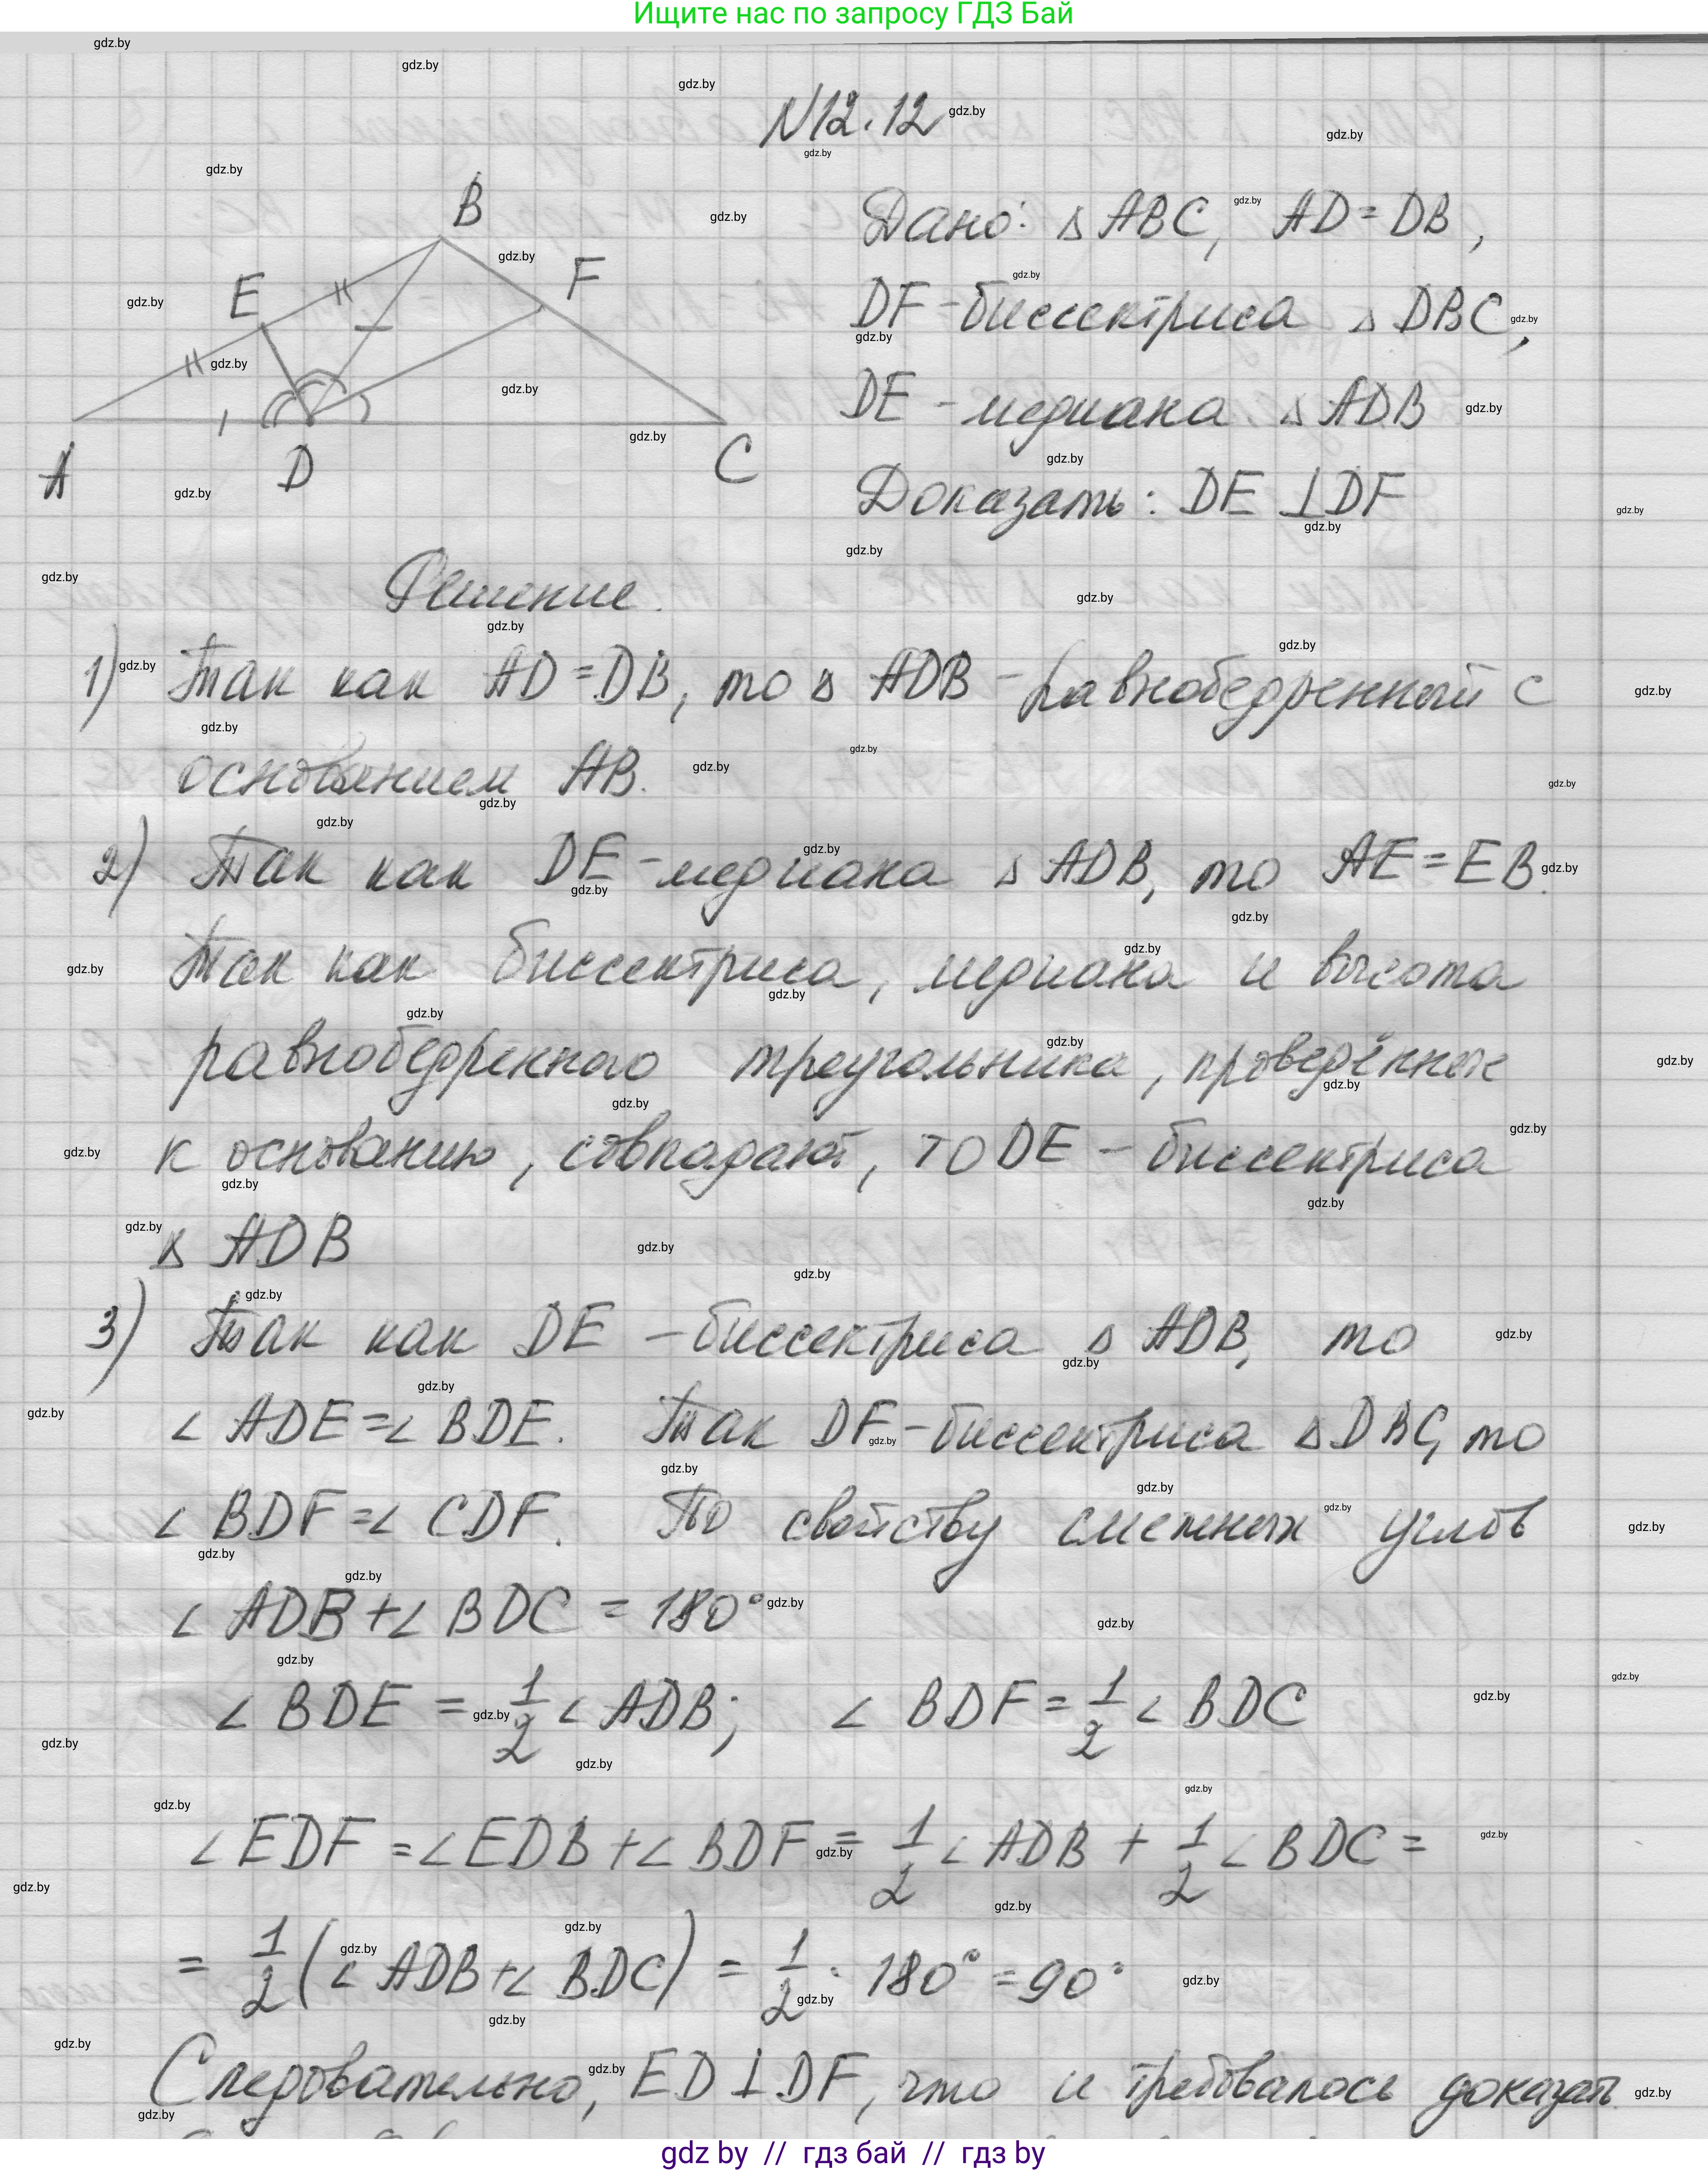 Ищите нас по запросу ГДЗ Бай
N12.12
B
E
F
A
D
C
Дано: △ ABC, AD = DB,
DF - биссектриса △ DBC,
DE - медиана △ ADB
Доказать: DE ⊥ DF
Решение.
1) Так как AD = DB, то △ ADB - равнобедренный с
основанием AB.
2) Так как DE - медиана △ ADB, то AE = EB.
Так как биссектриса, медиана и высота
равнобедренного треугольника, проведённые
к основанию, совпадают, то DE - биссектриса
△ ADB
3) Так как DE - биссектриса △ ADB, то
∠ ADE = ∠ BDE. Так DF - биссектриса △ DBC, то
∠ BDF = ∠ CDF. По свойству смежных углов
∠ ADB + ∠ BDC = 180°
∠ BDE = 1/2 ∠ ADB; ∠ BDF = 1/2 ∠ BDC
∠ EDF = ∠ EDB + ∠ BDF = 1/2 ∠ ADB + 1/2 ∠ BDC =
= 1/2 (∠ ADB + ∠ BDC) = 1/2 · 180° = 90°
Следовательно, ED ⊥ DF, что и требовалось доказать
gdz by // гдз бай // гдз by